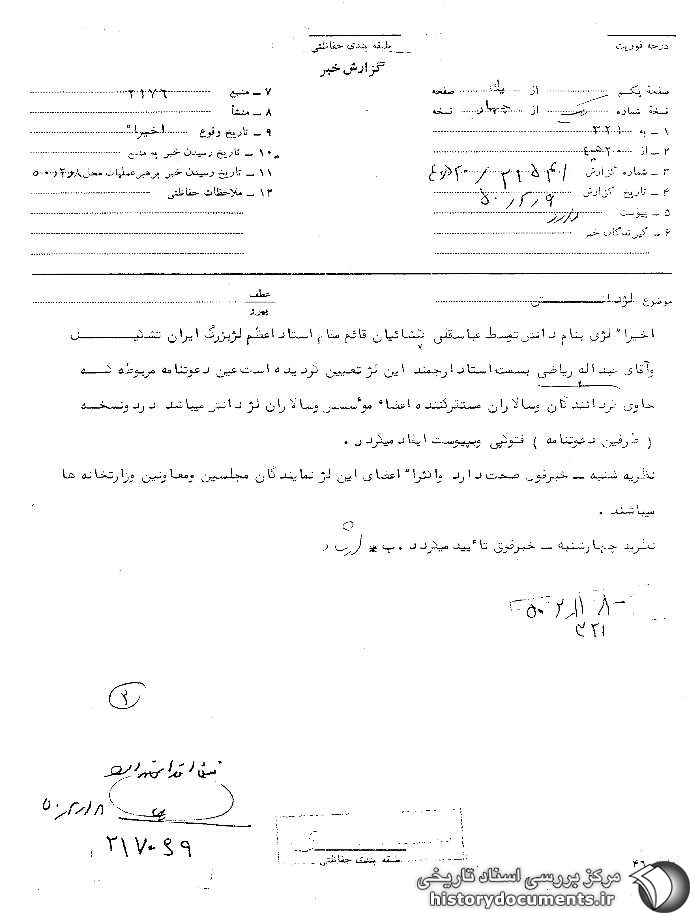 درجه فوریت
طبقه بندی حفاظتی
گزارش خبر
صفحه یکم از یک صفحه
نسخه شماره یک از چهار نسخه
۱ – به ۳۲۱
۲ – از ۲۰ هـ ۴
۳ – شماره گزارش
۴ – تاریخ گزارش ۵۰/۲/۹
۵ – پیوست دارد
۶ – گیرندگان خبر
۷ – منبع ۲۱۷۶
۸ – منشأ
۹ – تاریخ وقوع اخیرا"
۱۰ – تاریخ رسیدن خبر به منبع
۱۱ – تاریخ رسیدن خبر برهبر عملیات محل
۱۲ – ملاحظات حفاظتی
موضوع لژ دانش
عطف
پیرو
اخیرا" لژی بنام دانش توسط عباسقلی گلشائیان قائم مقام استاد اعظم لژ بزرگ ایران تشکیل
وآقای عبداله ریاضی بسمت استاد ارجمند این لژ تعیین گردیده است عین دعوتنامه مربوطه که
حاوی گردانندگان وسالاران مستقرکننده اعضاء مؤسس وسالاران لژ دانش میباشد در دونسخه
( طرفین دعوتنامه ) فتوکپی وبپیوست ایفاد میگردد .
نظریه شنبه – خبرفوق صحت دارد واکثرا" اعضای این لژ نمایندگان مجلسین ومعاونین وزارتخانه ها
میباشند .
نظریه چهارشنبه – خبرفوق تائید میگردد . ب*
۳۲۱
۲
۲۱۷۰۶۹
طبقه بندی حفاظتی
۴۶
مرکز بررسی اسناد تاریخی
historydocuments.ir